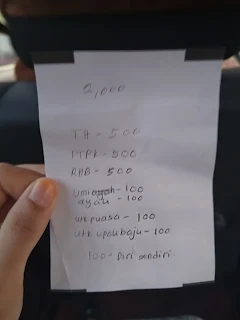 2,000
TH - 500
PTPK - 500
RHB - 500
umi - 100
ayah - 100
utk puasa - 100
utk upah baju - 100
100 - Diri sendiri